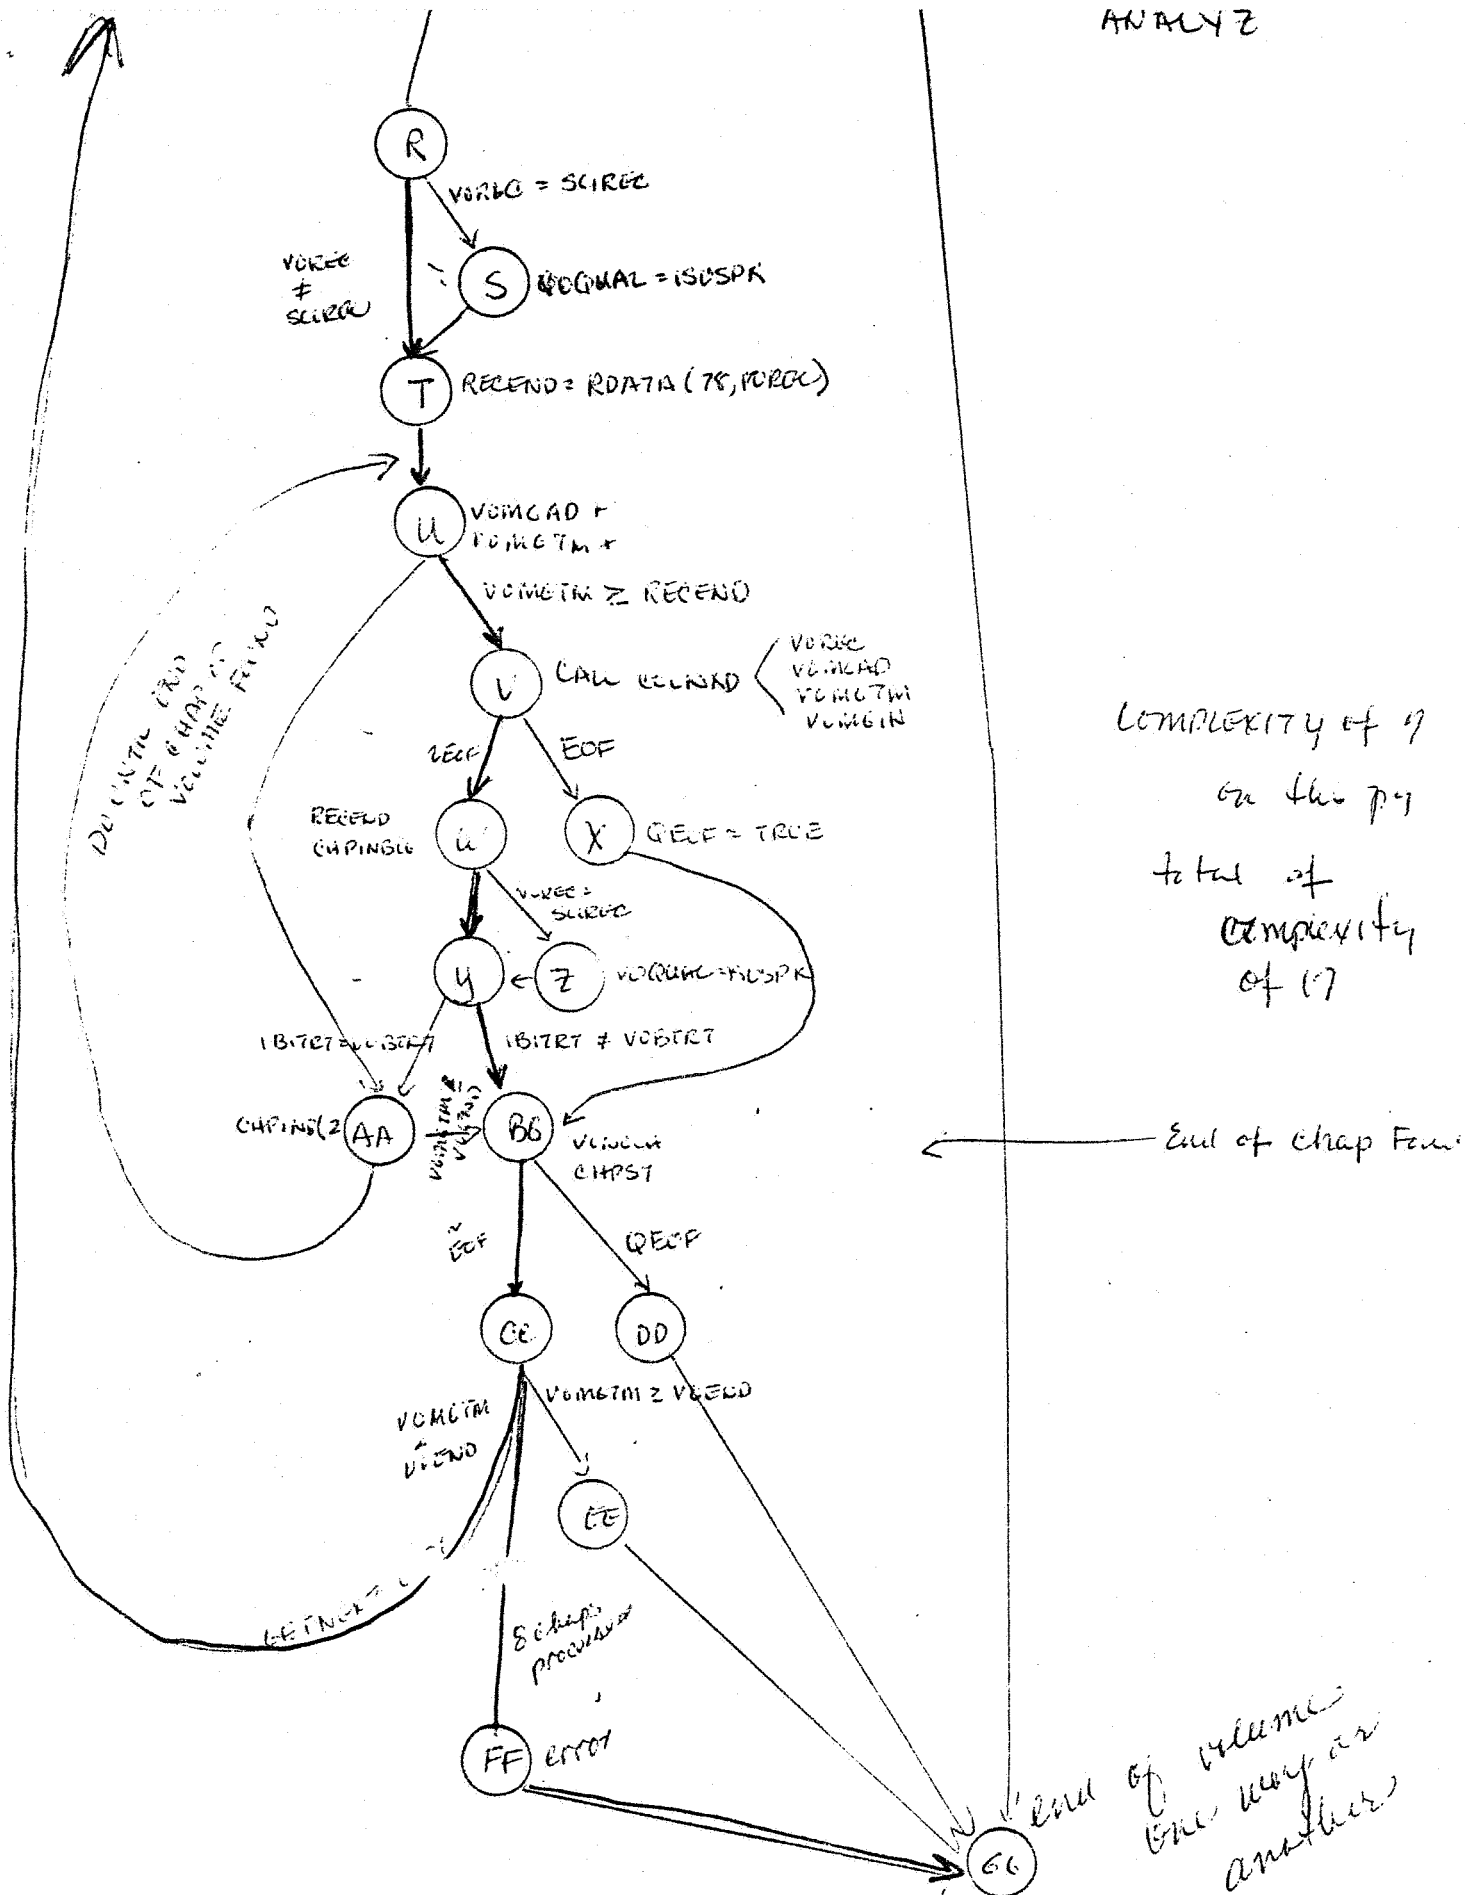 ANALYZ
R
VOREC = SCIREC
VOREC
≠
SCIREC
S
VOQUAL = ISUSPK
T
RECEND = RDATA (78, VOREC)
U
VOMGAD +
VOMGTM +
VOMGTM ≥ RECEND
DO UNTIL END
OF CHAP OR
VOLUME FOUND
V
CALL
VOREC
VOMGAD
VOMGTM
VOMGIN
EOF
RECEND
W
X
QEOF = TRUE
VOREC =
SCIREC
Y
Z
VOQUAL = ISUSPK
IBITRT = VOBTRT
IBITRT ≠ VOBTRT
AA
BB
CHPST
End of chap
EOF
QEOF
CC
DD
VOMGTM
VOEND
VOMGTM ≥ VOEND
EE
GETNEXT
8 chaps
processed
FF
error
GG
end of volume
one way or
another
COMPLEXITY of 9
on this pg
total of
complexity
of 17